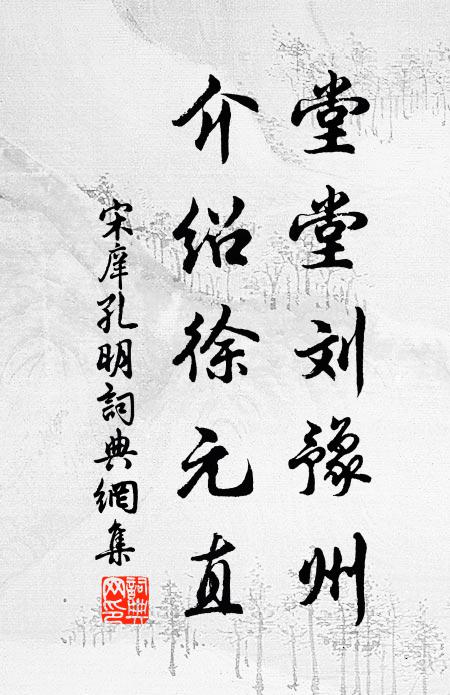 堂堂刘豫州
介绍徐元直
宋庠孔明詞典網集